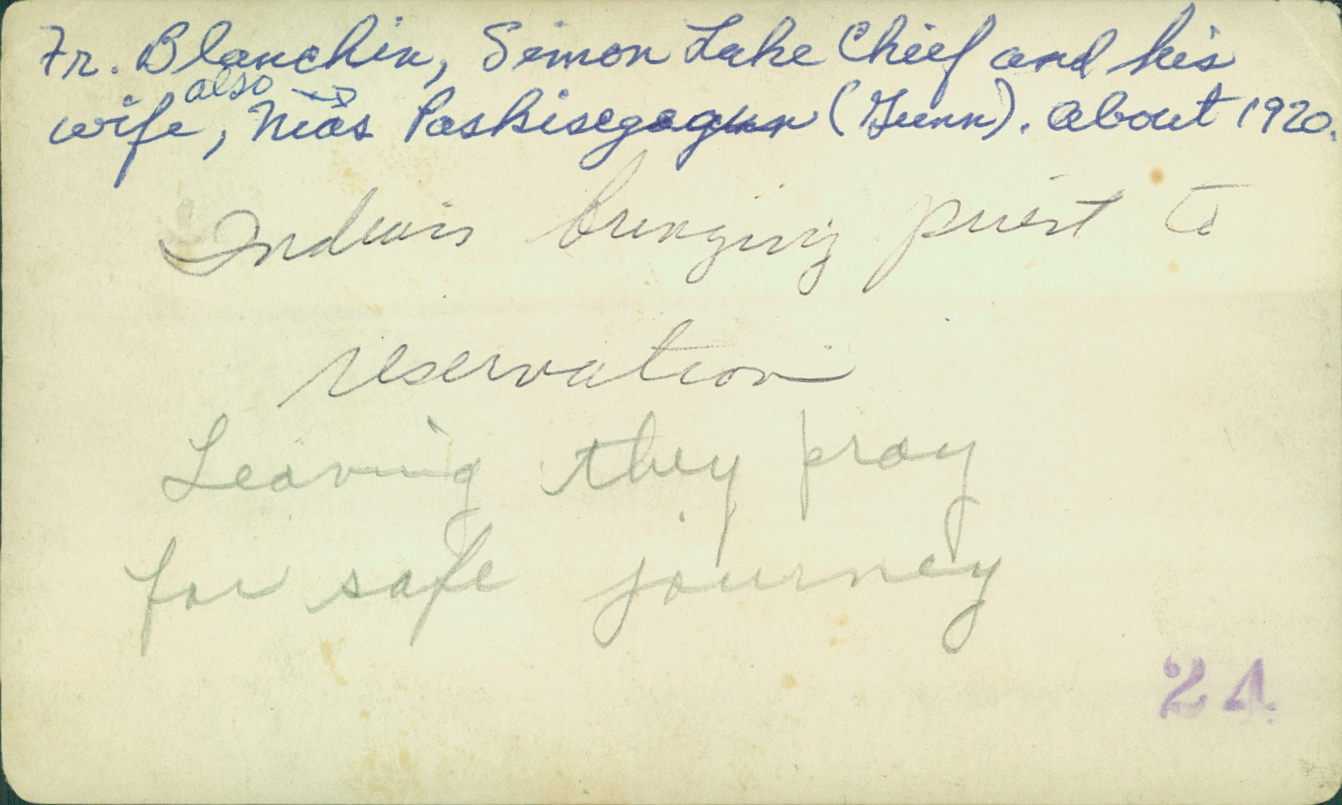 Fr. Blanchin, Simon Lake Chief and his
also
wife, Paskisegogun (Gunn). about 1920.
Indians bringing priest to
reservation
Leaving they pray
for safe journey
24